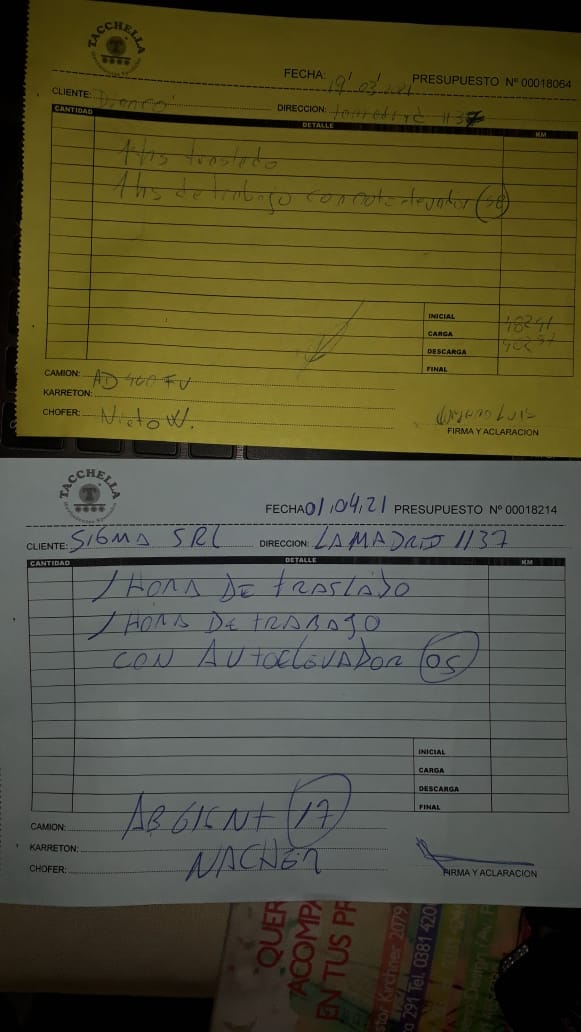 TACCHELLA
FECHA: 19/03/21 PRESUPUESTO Nº 00018064
CLIENTE: DIRECCION: 1137
CANTIDAD DETALLE KM
1 hs traslado
1 hs de trabajo con autoelevador
INICIAL 18241
CARGA
DESCARGA
FINAL
CAMION: AD
KARRETON:
CHOFER: Nieto W.
Luis
FIRMA Y ACLARACION
TACCHELLA
FECHA 01,04,21 PRESUPUESTO Nº 00018214
CLIENTE: SIGMA SRL DIRECCION: LAMADRID 1137
CANTIDAD DETALLE KM
1 HORA DE TRASLADO
1 HORA DE TRABAJO
CON AUTOELEVADOR 05
INICIAL
CARGA
DESCARGA
FINAL
CAMION: 17
KARRETON:
CHOFER: NACHER
FIRMA Y ACLARACION
QUER
ACOMPA
EN TUS PR
Kirchner 2079
291 Tel. 0381 420